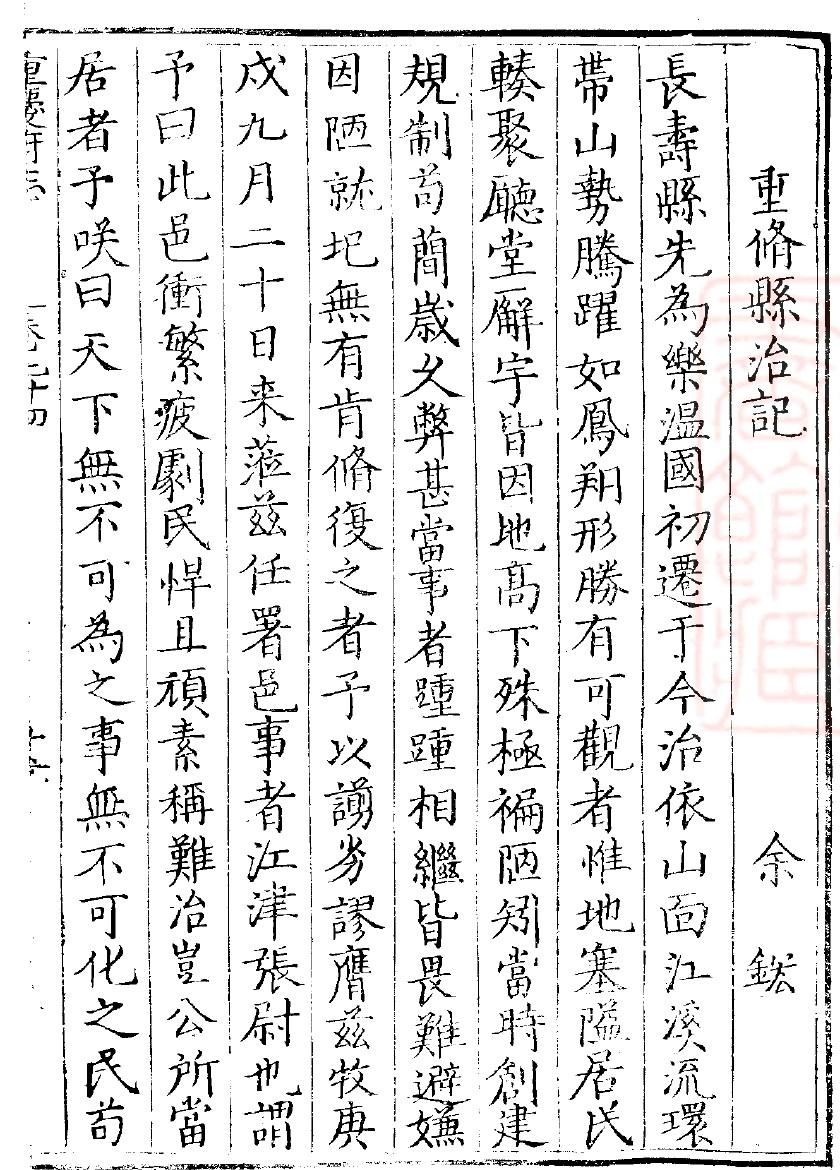 重脩縣治記　余鋐
長壽縣先為樂溫國初遷于今治依山面江溪流環
帶山勢騰躍如鳳翔形勝有可觀者惟地塞隘居民
輳聚廳堂廨宇皆因地高下殊極褊陋矧當時創建
規制苟簡歲久弊甚當事者踵踵相繼皆畏難避嫌
因陋就圮無有肯脩復之者予以謭劣謬膺茲牧庚
戍九月二十日来蒞茲任署邑事者江津張尉也謂
予曰此邑衝繁疲劇民悍且頑素稱難治豈公所當
居者予咲曰天下無不可為之事無不可化之民苟
重慶府志　卷七十四